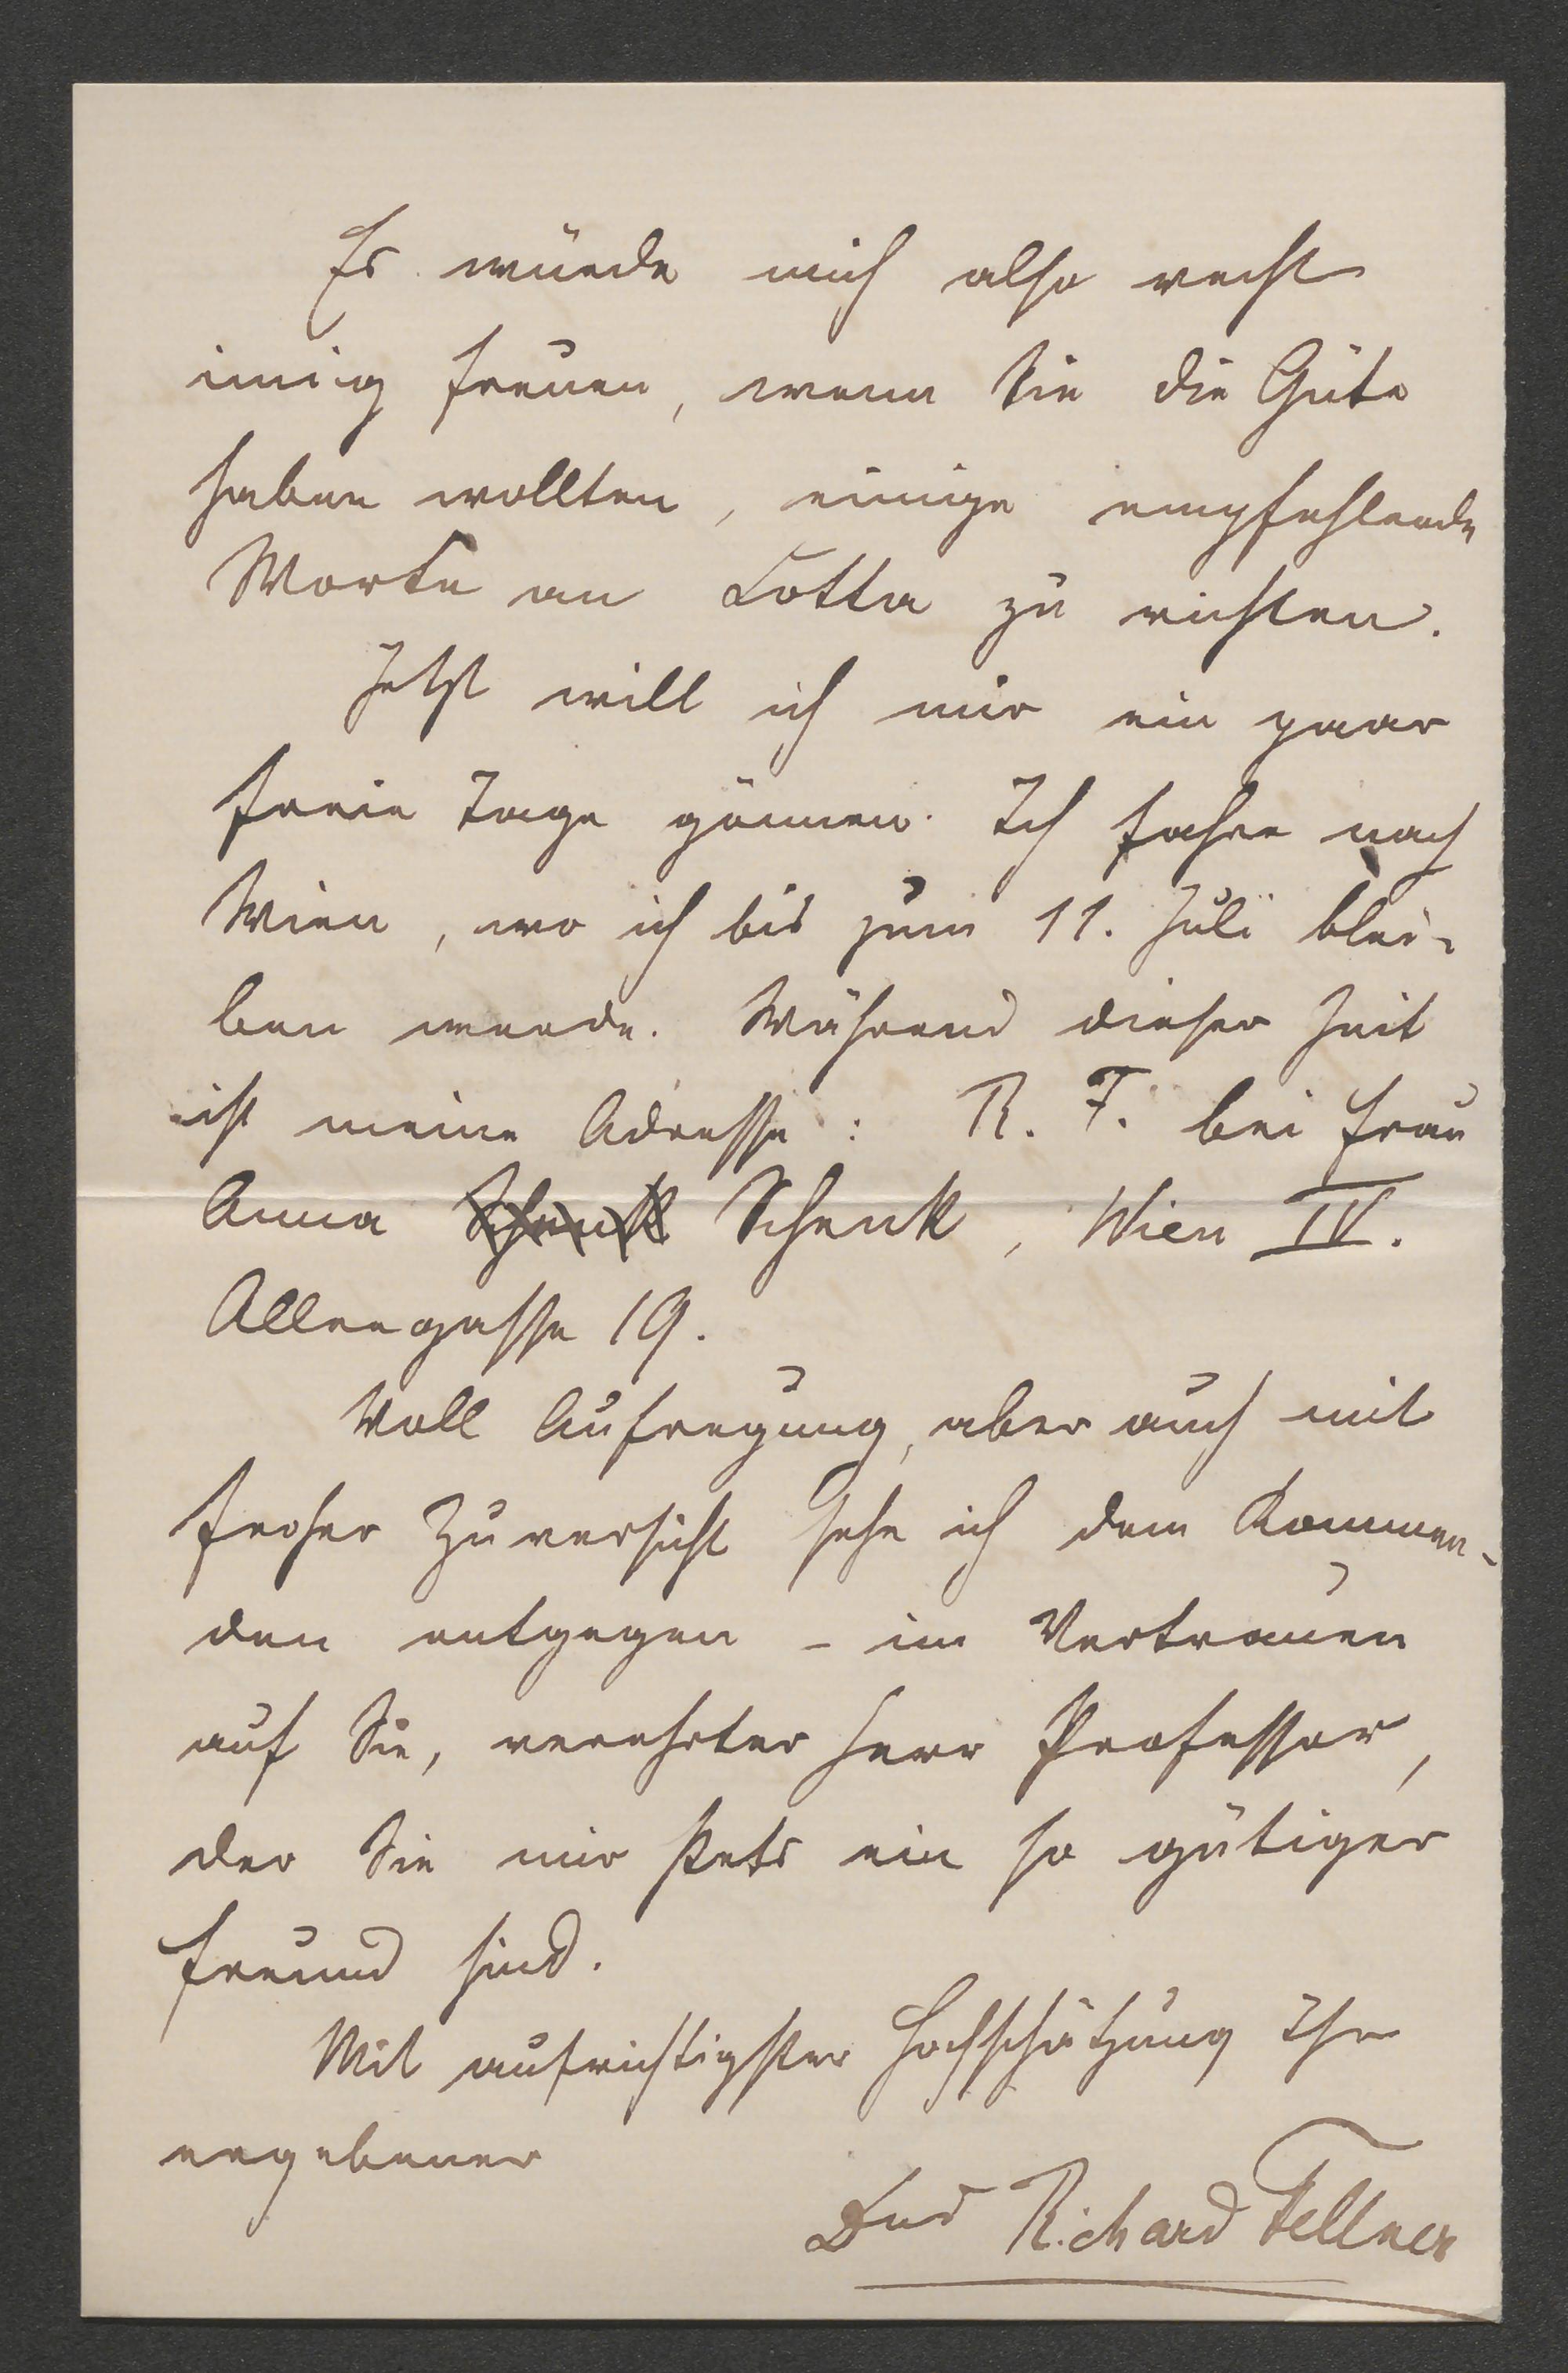 Es würde mich also recht
innig freuen, wenn Sie die Güte
haben wollten, einige empfehlende
Worte an Cotta zu richten.
Jetzt will ich mir ein paar
freie Tage gönnen. Ich fahre nach
Wien, wo ich bis zum 11. Juli blei-
ben werde. Während dieser Zeit
ist meine Adresse: R. F. bei Frau
Anna Schenk Schenk, Wien IV.
Alleegasse 19.
Voll Aufregung, aber auch mit
froher Zuversicht sehe ich dem Kommen-
den entgegen – im Vertrauen
auf Sie, verehrter Herr Professor,
der Sie mir stets ein so gütiger
Freund sind.
Mit aufrichtigster Hochschätzung Ihr
ergebener
Richard Fellner